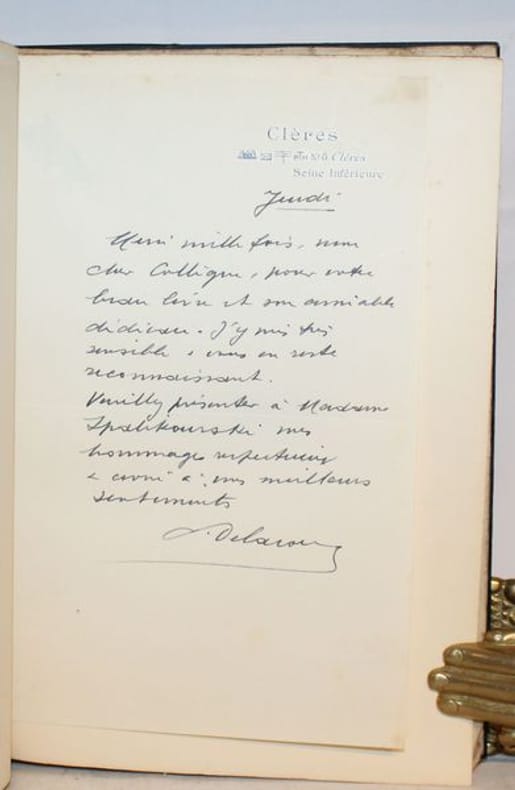 Clères
Clères
Seine Inférieure
Jeudi
Merci mille fois, mon
cher Collègue, pour votre
beau livre et son aimable
dédicace. J'y suis très
sensible & vous en reste
reconnaissant.
Veuillez présenter à Madame
Spalikowski mes
hommages respectueux
& croire à mes meilleurs
sentiments
J. Delacour